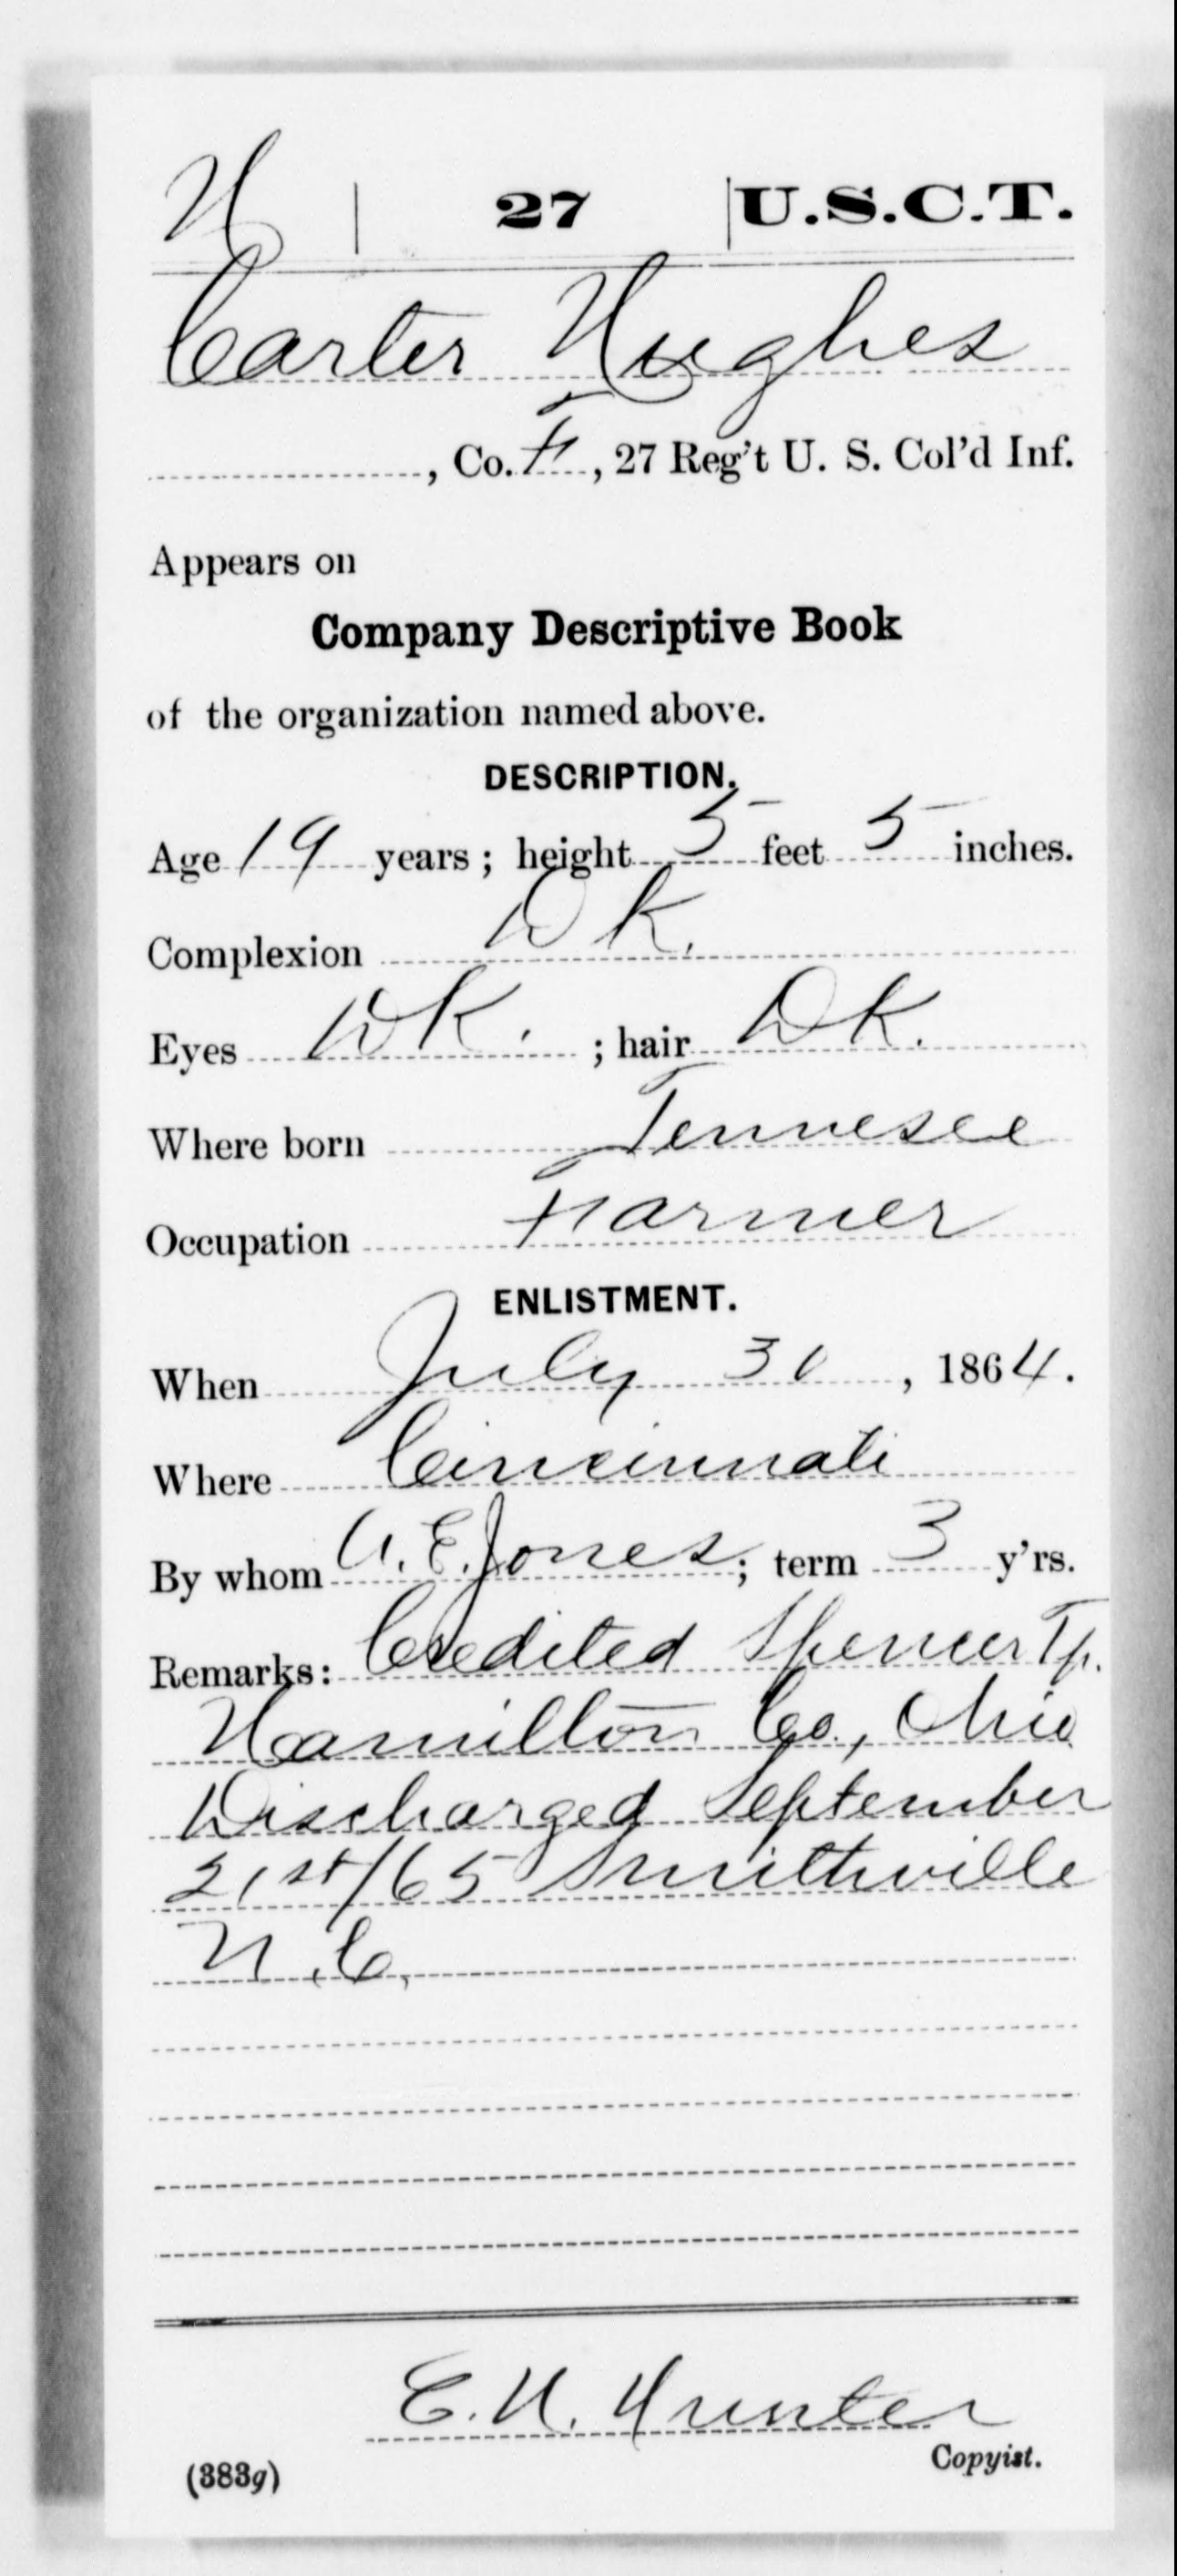 H | 27 | U.S.C.T.
Carter Hughes
, Co. F, 27 Reg't U. S. Col'd Inf.
Appears on
Company Descriptive Book
of the organization named above.
DESCRIPTION.
Age 19 years; height 5 feet 5 inches.
Complexion Dk.
Eyes Dk. ; hair Dk.
Where born Tennesee
Occupation Farmer
ENLISTMENT.
When July 30, 1864.
Where Cincinnati
By whom A. E. Jones; term 3 y'rs.
Remarks: Credited Spencer Tp.
Hamilton Co., Ohio
Discharged September
21st/65 Smithville
N.C.
E. H. Hunter
Copyist.
(383g)